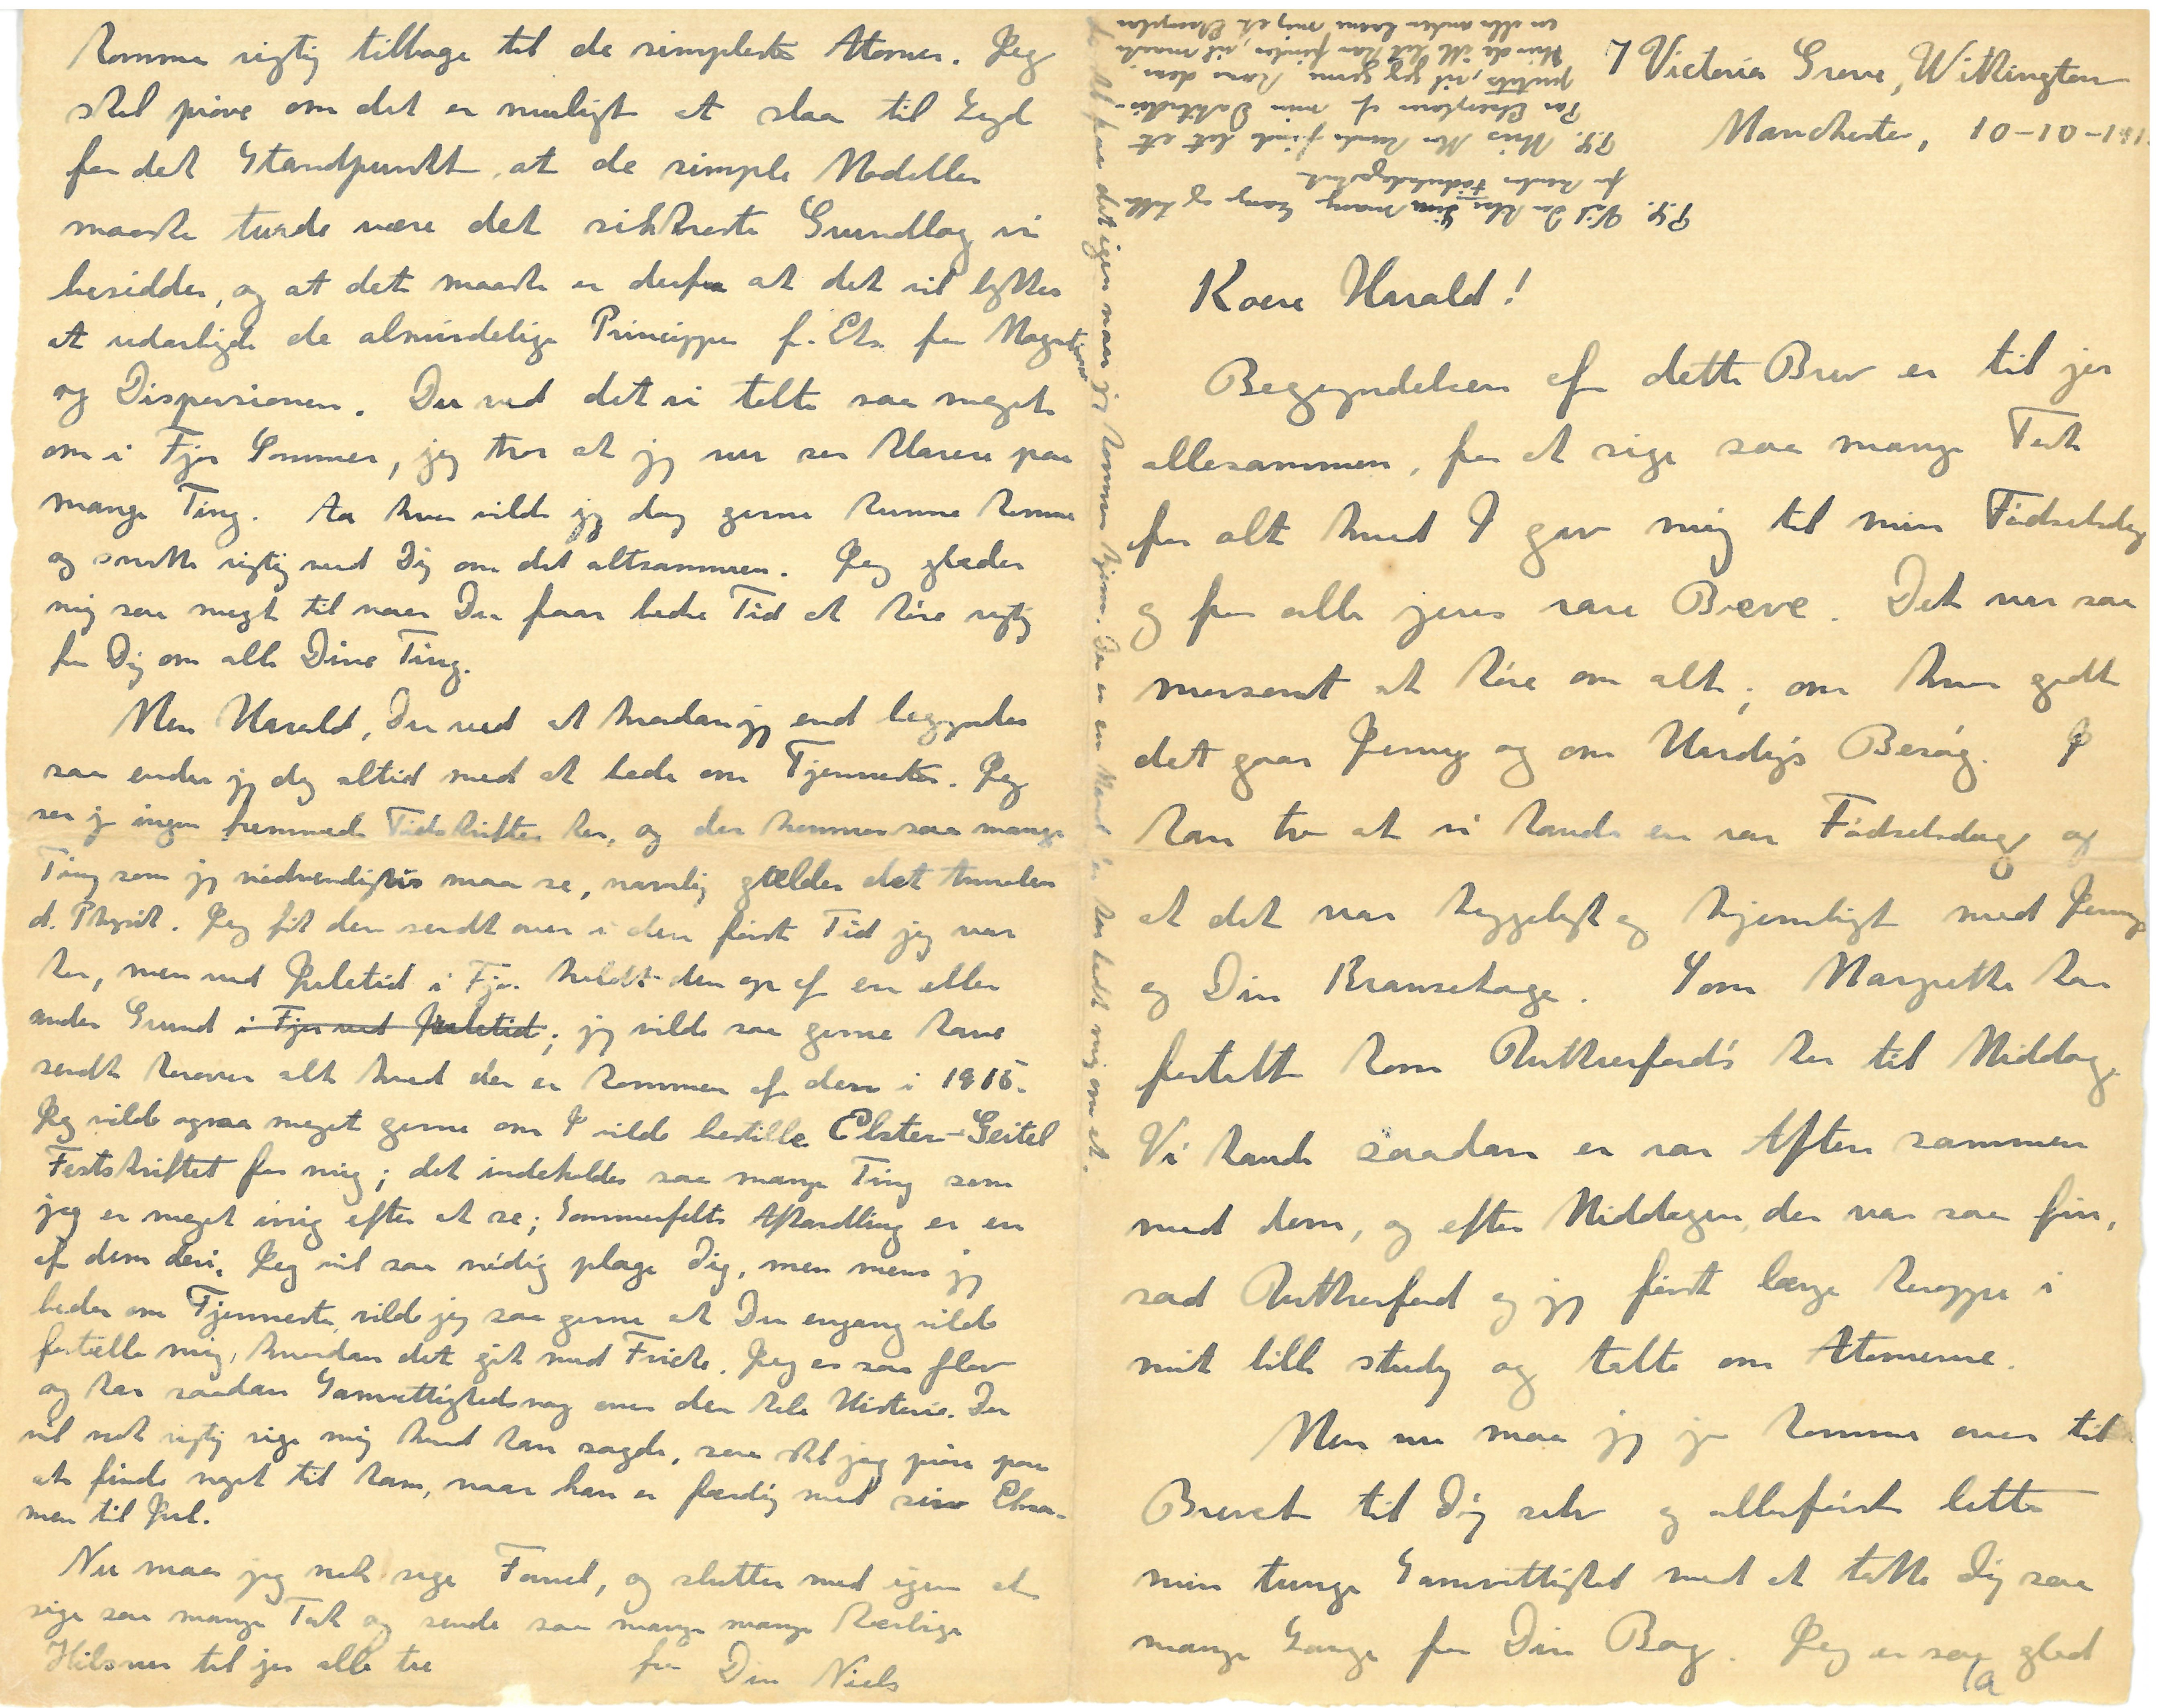 7 Victoria Grove, Withington
Manchester, 10-10-191
Kære Harald!
Begyndelsen af dette Brev er til jer
allesammen, for at sige saa mange Tak
for alt hvad I gav mig til min Fødselsdag
og for alle jeres rare Breve. Det var saa
morsomt at høre om alt; om hvor godt
det gaar Jenny og om Hardy's Besøg. I
kan tro at vi havde en rar Fødselsdag og
at det var hyggeligt og hjemligt med Jennys
og Din Kransekage. Som Margrethe har
fortalt kom Rutherford's her til Middag.
Vi havde saadan en rar Aften sammen
med dem, og efter Middagen, der var saa fin,
sad Rutherford og jeg først længe heroppe i
mit lille study og talte om Atomerne.
Men nu maa jeg jo komme over til
Brevet til Dig selv og allerførst lette
min tunge Samvittighed med at takke Dig saa
mange Gange for Din Bog. Jeg er saa glad
1a
komme rigtig tilbage til de simpleste Atomer. Jeg
skal prøve om det er muligt at slaa til Lyd
for det Standpunkt, at de simple Modeller
maaske turde være det sikkreste Grundlag vi
besidder, og at det maaske er derfra at det vil lykkes
at udarbejde de almindelige Principper f. Eks. for Magnetismen
og Dispersionen. Du ved det vi talte saa meget
om i Fjor Sommer, jeg tror at jeg nu ser klarere paa
mange Ting. Aa hvor vilde jeg dog gerne kunne komme
og snakke rigtig med Dig om det altsammen. Jeg glæder
mig saa meget til naar Du faar bedre Tid at høre rigtig
fra Dig om alle Dine Ting.
Men Harald, Du ved at hvordan jeg end begynder
saa ender jeg dog altid med at bede om Tjenester. Jeg
ser jo ingen fremmede Tidskrifter her, og der kommer saa mange
Ting som jeg nødvendigvis maa se, navnlig gælder det Annalen
d. Physik. Jeg fik den sendt over i den første Tid jeg var
her, men ved Juletid i Fjor holdt den op af en eller
anden Grund i Fjor ved Juletid; jeg vilde saa gerne have
sendt herover alt hvad der er kommen af den i 1915.
Jeg vilde ogsaa meget gerne om I vilde bestille Elster-Geitel
Festskriftet for mig; det indeholder saa mange Ting som
jeg er meget ivrig efter at se; Sommerfelts Afhandling er en
af dem deri. Jeg vil saa nødig plage Dig, men mens jeg
beder om Tjenester, vilde jeg saa gerne at Du engang vilde
fortælle mig, hvordan det gik med Fricke. Jeg er saa flov
og har saadan Samvittighedsnag over den hele Historie. Du
vil nok rigtig sige mig hvad han sagde, saa skal jeg prøve paa
at finde noget til ham, naar han er færdig med sin Eksa-
men til Jul.
Nu maa jeg nok sige Farvel, og slutter med igen at
sige saa mange Tak og sende saa mange mange kærlige
Hilsner til jer alle tre
fra Din Niels
det igen naar jeg kommer hjem. Der er en Mand der har bedt mig om et.
P.S. Vil Du hilse Lin mange Gange og takke
for hendes Fødselsdagsbrev.
P.S. Hvis Mor kunde finde let et
Par Eksemplarer af min Doktordis-
putats, vil jeg gerne have dem.
Hvis de ikke let kan findes, vil maaske
en eller anden laane mig et Eksemplar